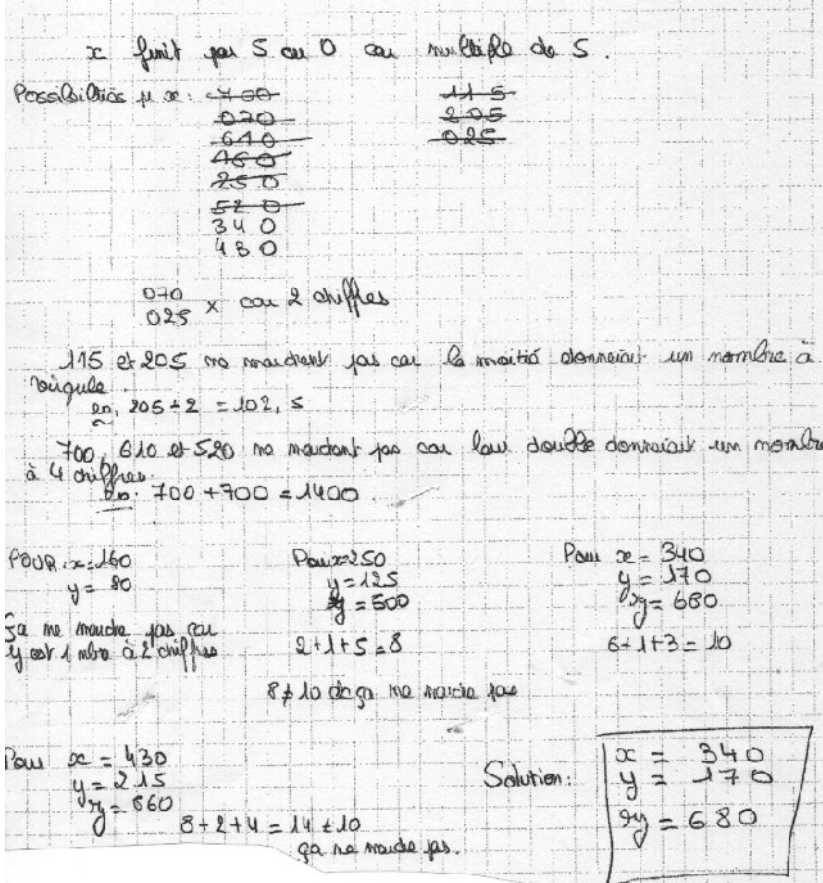 x finit par 5 ou 0 car multiple de 5.
Possibilités pr x : 700 115
070 205
610 025
160
250
520
340
430
070
025 x car 2 chiffres
115 et 205 ne marchent pas car la moitié donnerait un nombre à
virgule.
ex. 205 ÷ 2 = 102,5
700, 610 et 520 ne marchent pas car leur double donnerait un nombre
à 4 chiffres.
ex. 700 + 700 = 1400
POUR x = 160
y = 80
ça ne marche pas car
y est 1 nbre à 2 chiffres
Pour x = 250
y = 125
= 500
2+1+5 = 8
8 ≠ 10 dc ça ne marche pas
Pour x = 340
y = 170
= 680
6+1+3 = 10
Pour x = 430
y = 215
= 860
8+2+4 = 14 ≠ 10
ça ne marche pas.
Solution :
x = 340
y = 170
= 680